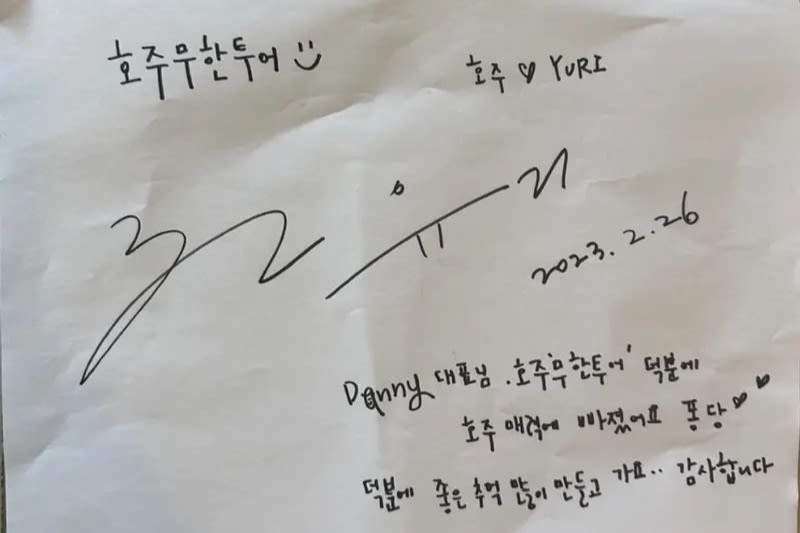 호주무한투어
호주 ♡ YURI
유리
2023. 2. 26
Danny 대표님. 호주'무한투어' 덕분에
호주 매력에 빠졌어요 퐁당♡♡
덕분에 좋은 추억 많이 만들고 가요.. 감사합니다